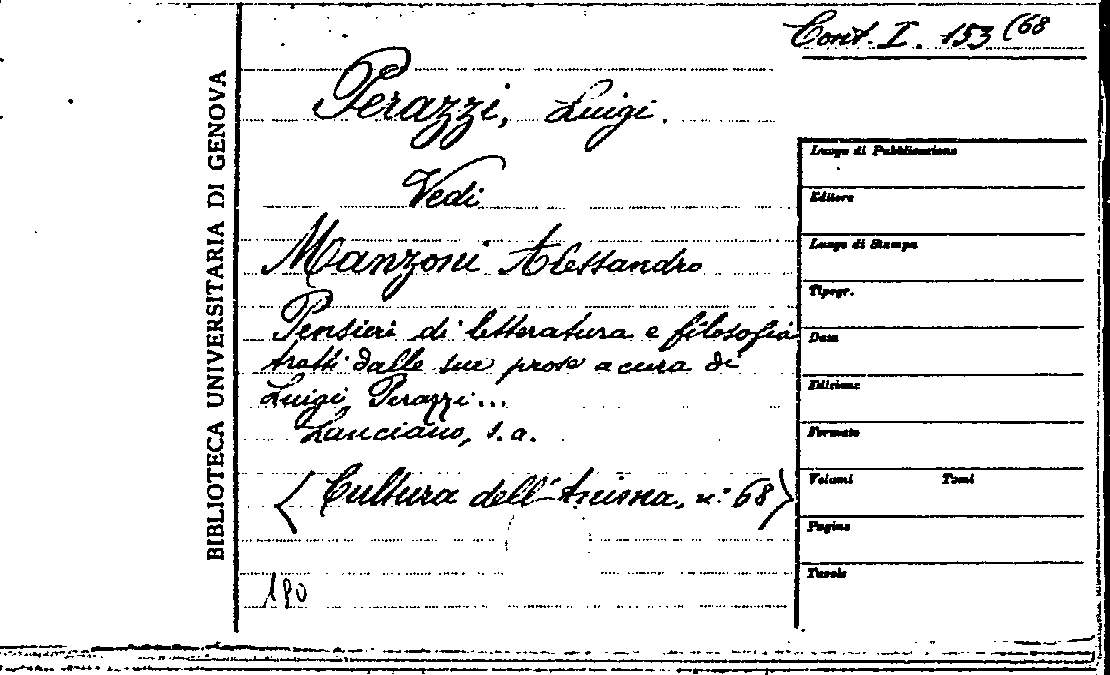 Cont. I. 153 (68
BIBLIOTECA UNIVERSITARIA DI GENOVA
Perazzi, Luigi.
Vedi
Manzoni Alessandro
Pensieri di letteratura e filosofia
tratti dalle sue prose a cura di
Luigi Perazzi...
Lanciano, s.a.
(Cultura dell'Anima, n.° 68)
190
Luogo di Pubblicazione
Editore
Luogo di Stampa
Tipogr.
Data
Edizione
Formato
Volumi Tomi
Pagine
Tavole